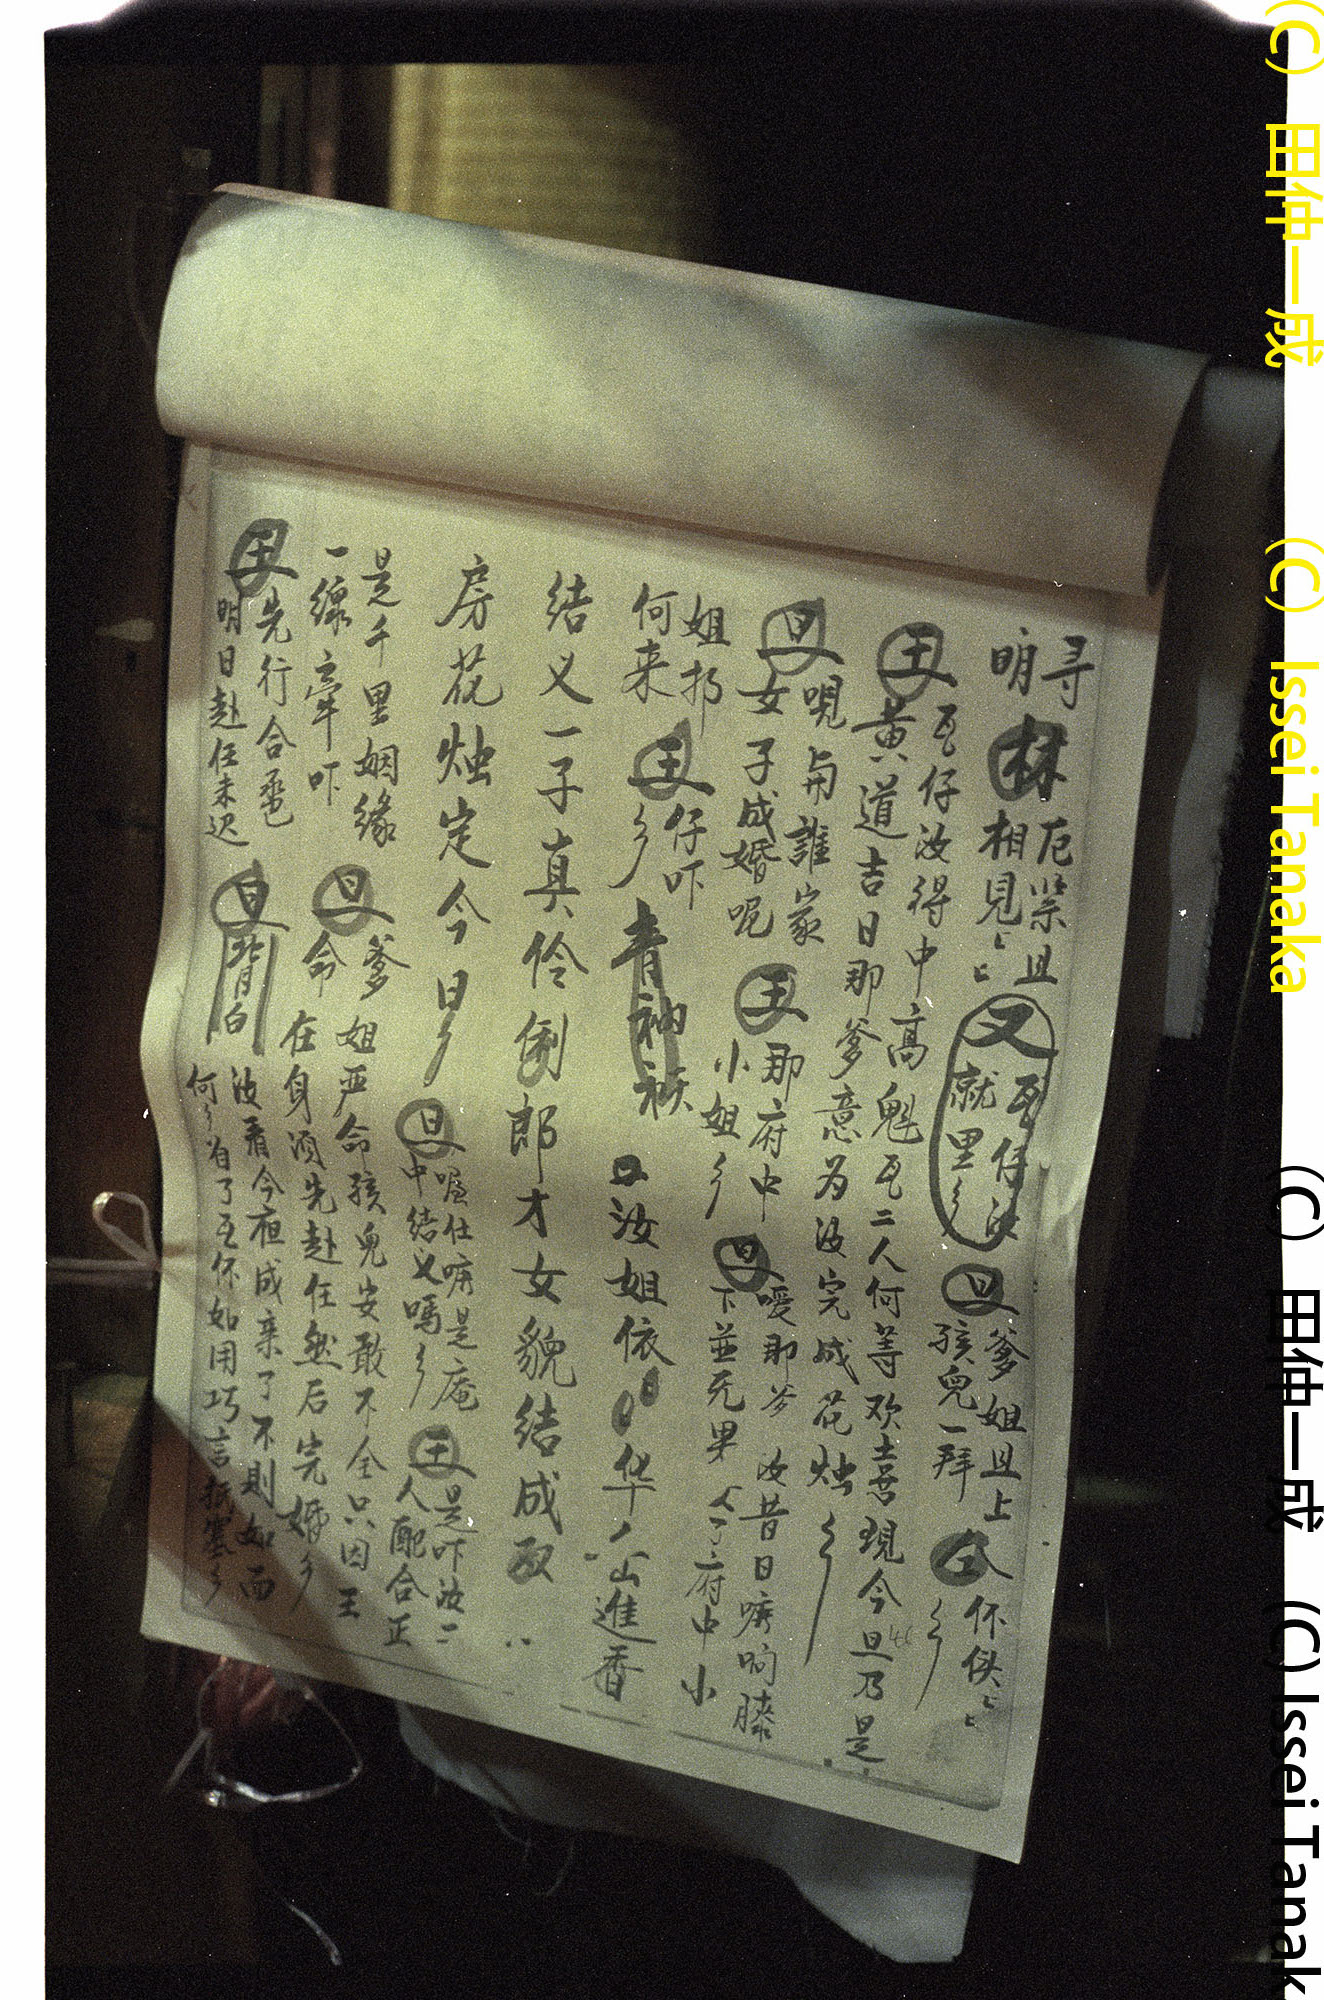 寻
明
林
厄
相見
且
又
瓦仔汝
就里
旦
爹姐且上
孩兒一拜
仝
怀
王
瓦仔汝得中高魁瓦二人何等欢喜現今旦乃是
黄道吉日那爹意为汝完成花烛
旦
唄与誰家
女子成婚呢
王
那府中
小姐
旦
嗳那爹 汝昔日
下並无果 府中小
姐
何来
王
仔吓
青衲袄
汝姐依 华山進香
结义一子真伶俐郎才女貌结成双
房花烛定今日
旦
喔仕 是庵
中结义嗎
王
是吓汝二
人配合正
是千里姻缘
一線牽吓
旦
爹姐严命孩兒安敢不全只因王
命在身須先赴任然后完婚
王
先行合卺
明日赴任未迟
旦
背白
汝看今夜成亲了不則如而
何 有了瓦怀如用巧言抵塞
(C) 田仲一成 (C) Issei Tanaka (C) 田仲一成 (C) Issei Tanak